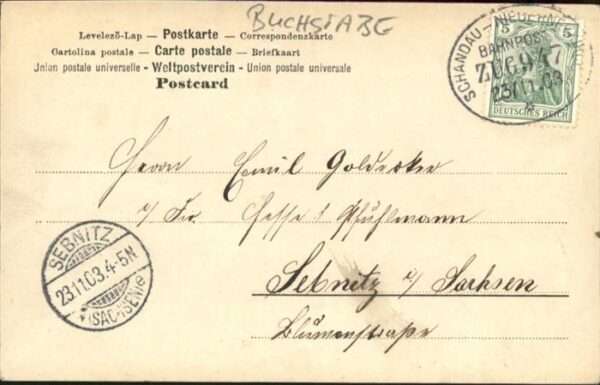 BUCHSTABE
Levelező-Lap — Postkarte — Correspondenzkarte
Cartolina postale — Carte postale — Briefkaart
Union postale universelle - Weltpostverein - Union postale universale
Postcard
SCHANDAU-NIEDERNEUKIRCH
BAHNPOST
ZUG 947
23/11.03
5 5
DEUTSCHES REICH
Herrn Emil
i/ Fa. Hesse & Pfuhlmann
Sebnitz i/ Sachsen
Blumenstraße
SEBNITZ
23.11.03.4-5N
(SACHSEN)